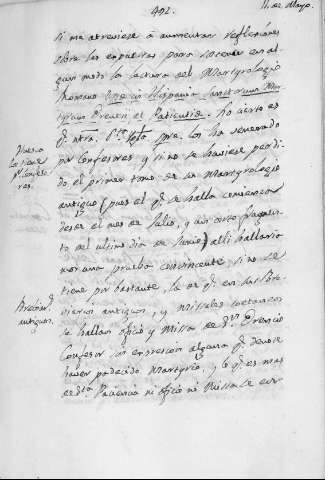 492.
11. de Mayo.
si me atreviese á aumentar reflexiones
sobre los esfuerzos para sostener en al-
gun modo la lectura del Martyrologio
Romano Hispania Sanctorum Mar-
tyrum Orentii, et Patientiæ. Lo cierto es
q.e ntra. Sta. Igla. spre. los ha venerado
por Confesores y si no se huviese perdi-
do el primer tomo de un Martyrologio
antiguo (pues el q.e se halla comienza
desde el mes de Julio, y un corto fragmen-
to del ultimo dia de Junio) alli hallaria-
mos una prueba convincente si no se
tiene por bastante la de q.e en los Bre-
viarios antiguos, y Misales coetaneos
se hallan oficio y Missa de Sn. Orencio
Confesor sin expresion alguna q.e denote
haver padecido Martyrio, y lo q.e es mas
de Sta. Paciencia ni oficio ni Missa se en-
Huesca
los tiene
pr. Confeso-
res.
Breviar.s
antiguos.